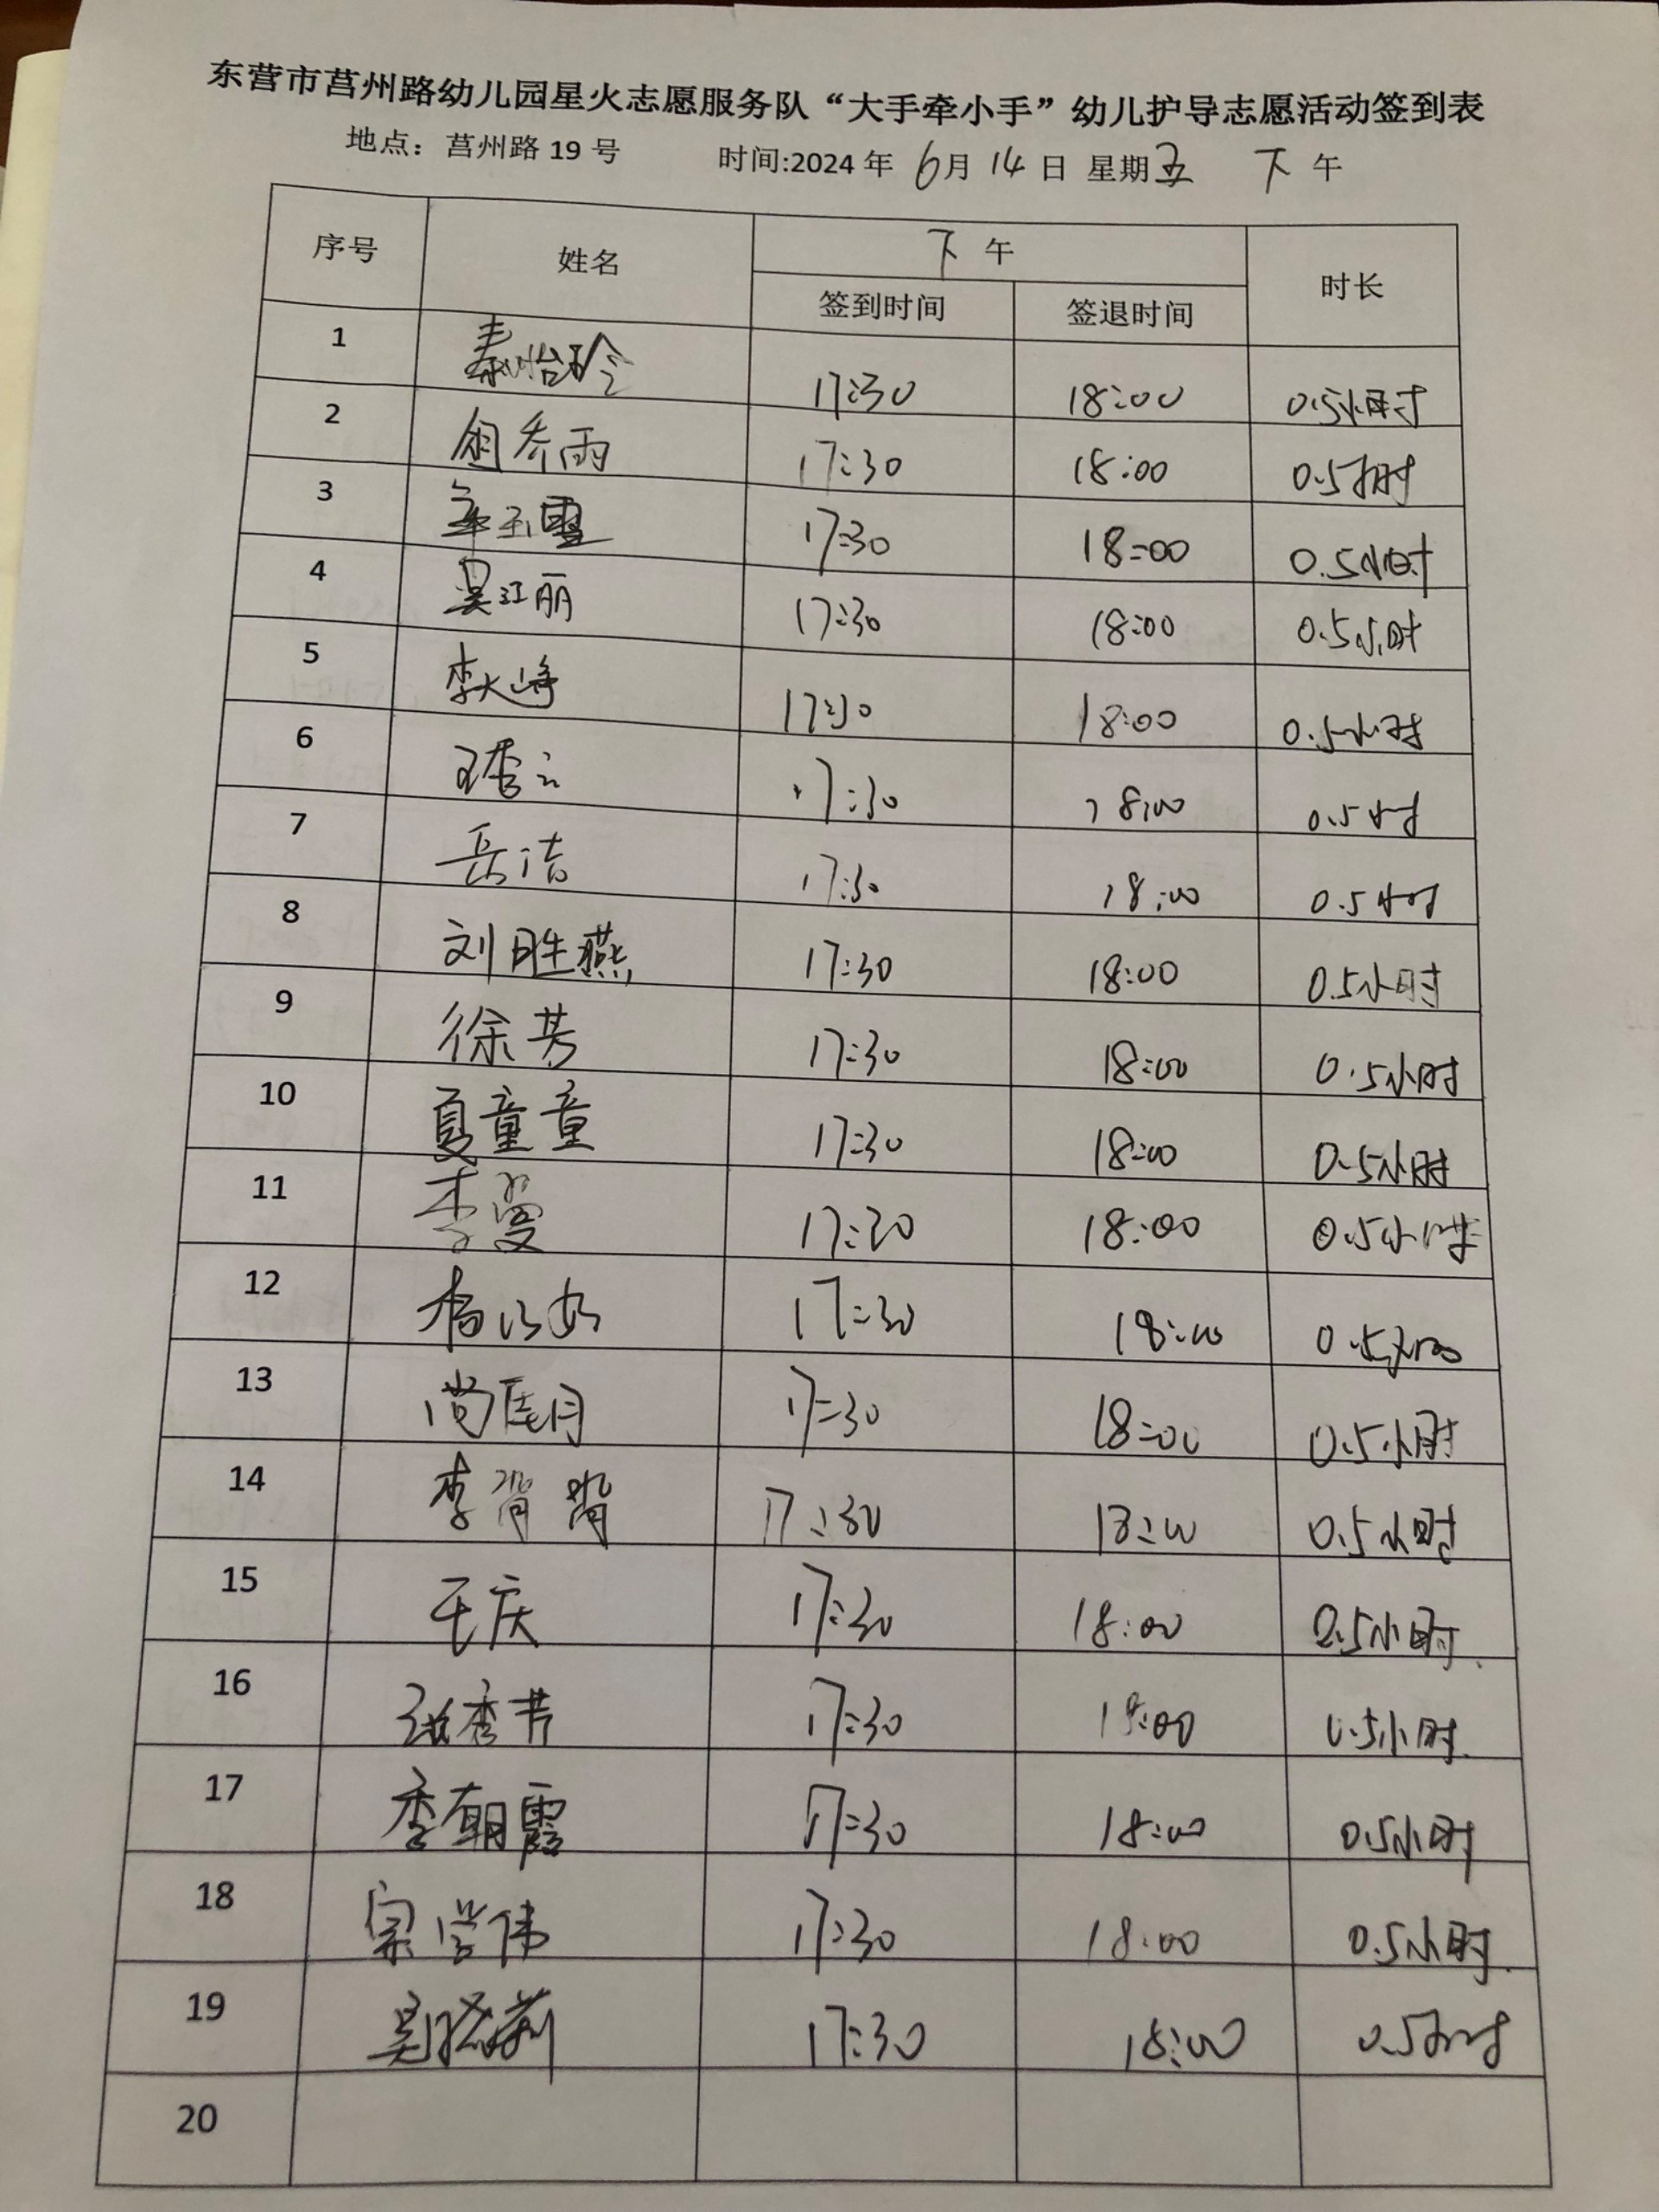 东营市莒州路幼儿园星火志愿服务队“大手牵小手”幼儿护导志愿活动签到表
地点：莒州路 19 号 时间:2024 年 6月 14 日 星期五 下 午
序号 姓名 下 午 时长
签到时间 签退时间
1 秦怡玲 17:30 18:00 0.5小时
2 乔雨 17:30 18:00 0.5小时
3 17:30 18:00 0.5小时
4 吴江丽 17:30 18:00 0.5小时
5 李大峰 17:30 18:00 0.5小时
6 17:30 18:00 0.5小时
7 岳洁 17:30 18:00 0.5小时
8 刘胜燕 17:30 18:00 0.5小时
9 徐芳 17:30 18:00 0.5小时
10 夏童童 17:30 18:00 0.5小时
11 李曼 17:30 18:00 0.5小时
12 17:30 18:00 0.5
13 尚月 17:30 18:00 0.5小时
14 李 17:30 18:00 0.5小时
15 王庆 17:30 18:00 0.5小时
16 张秀芳 17:30 18:00 0.5小时
17 李朝霞 17:30 18:00 0.5小时
18 宗学伟 17:30 18:00 0.5小时
19 吴晓莉 17:30 18:00 0.5小时
20